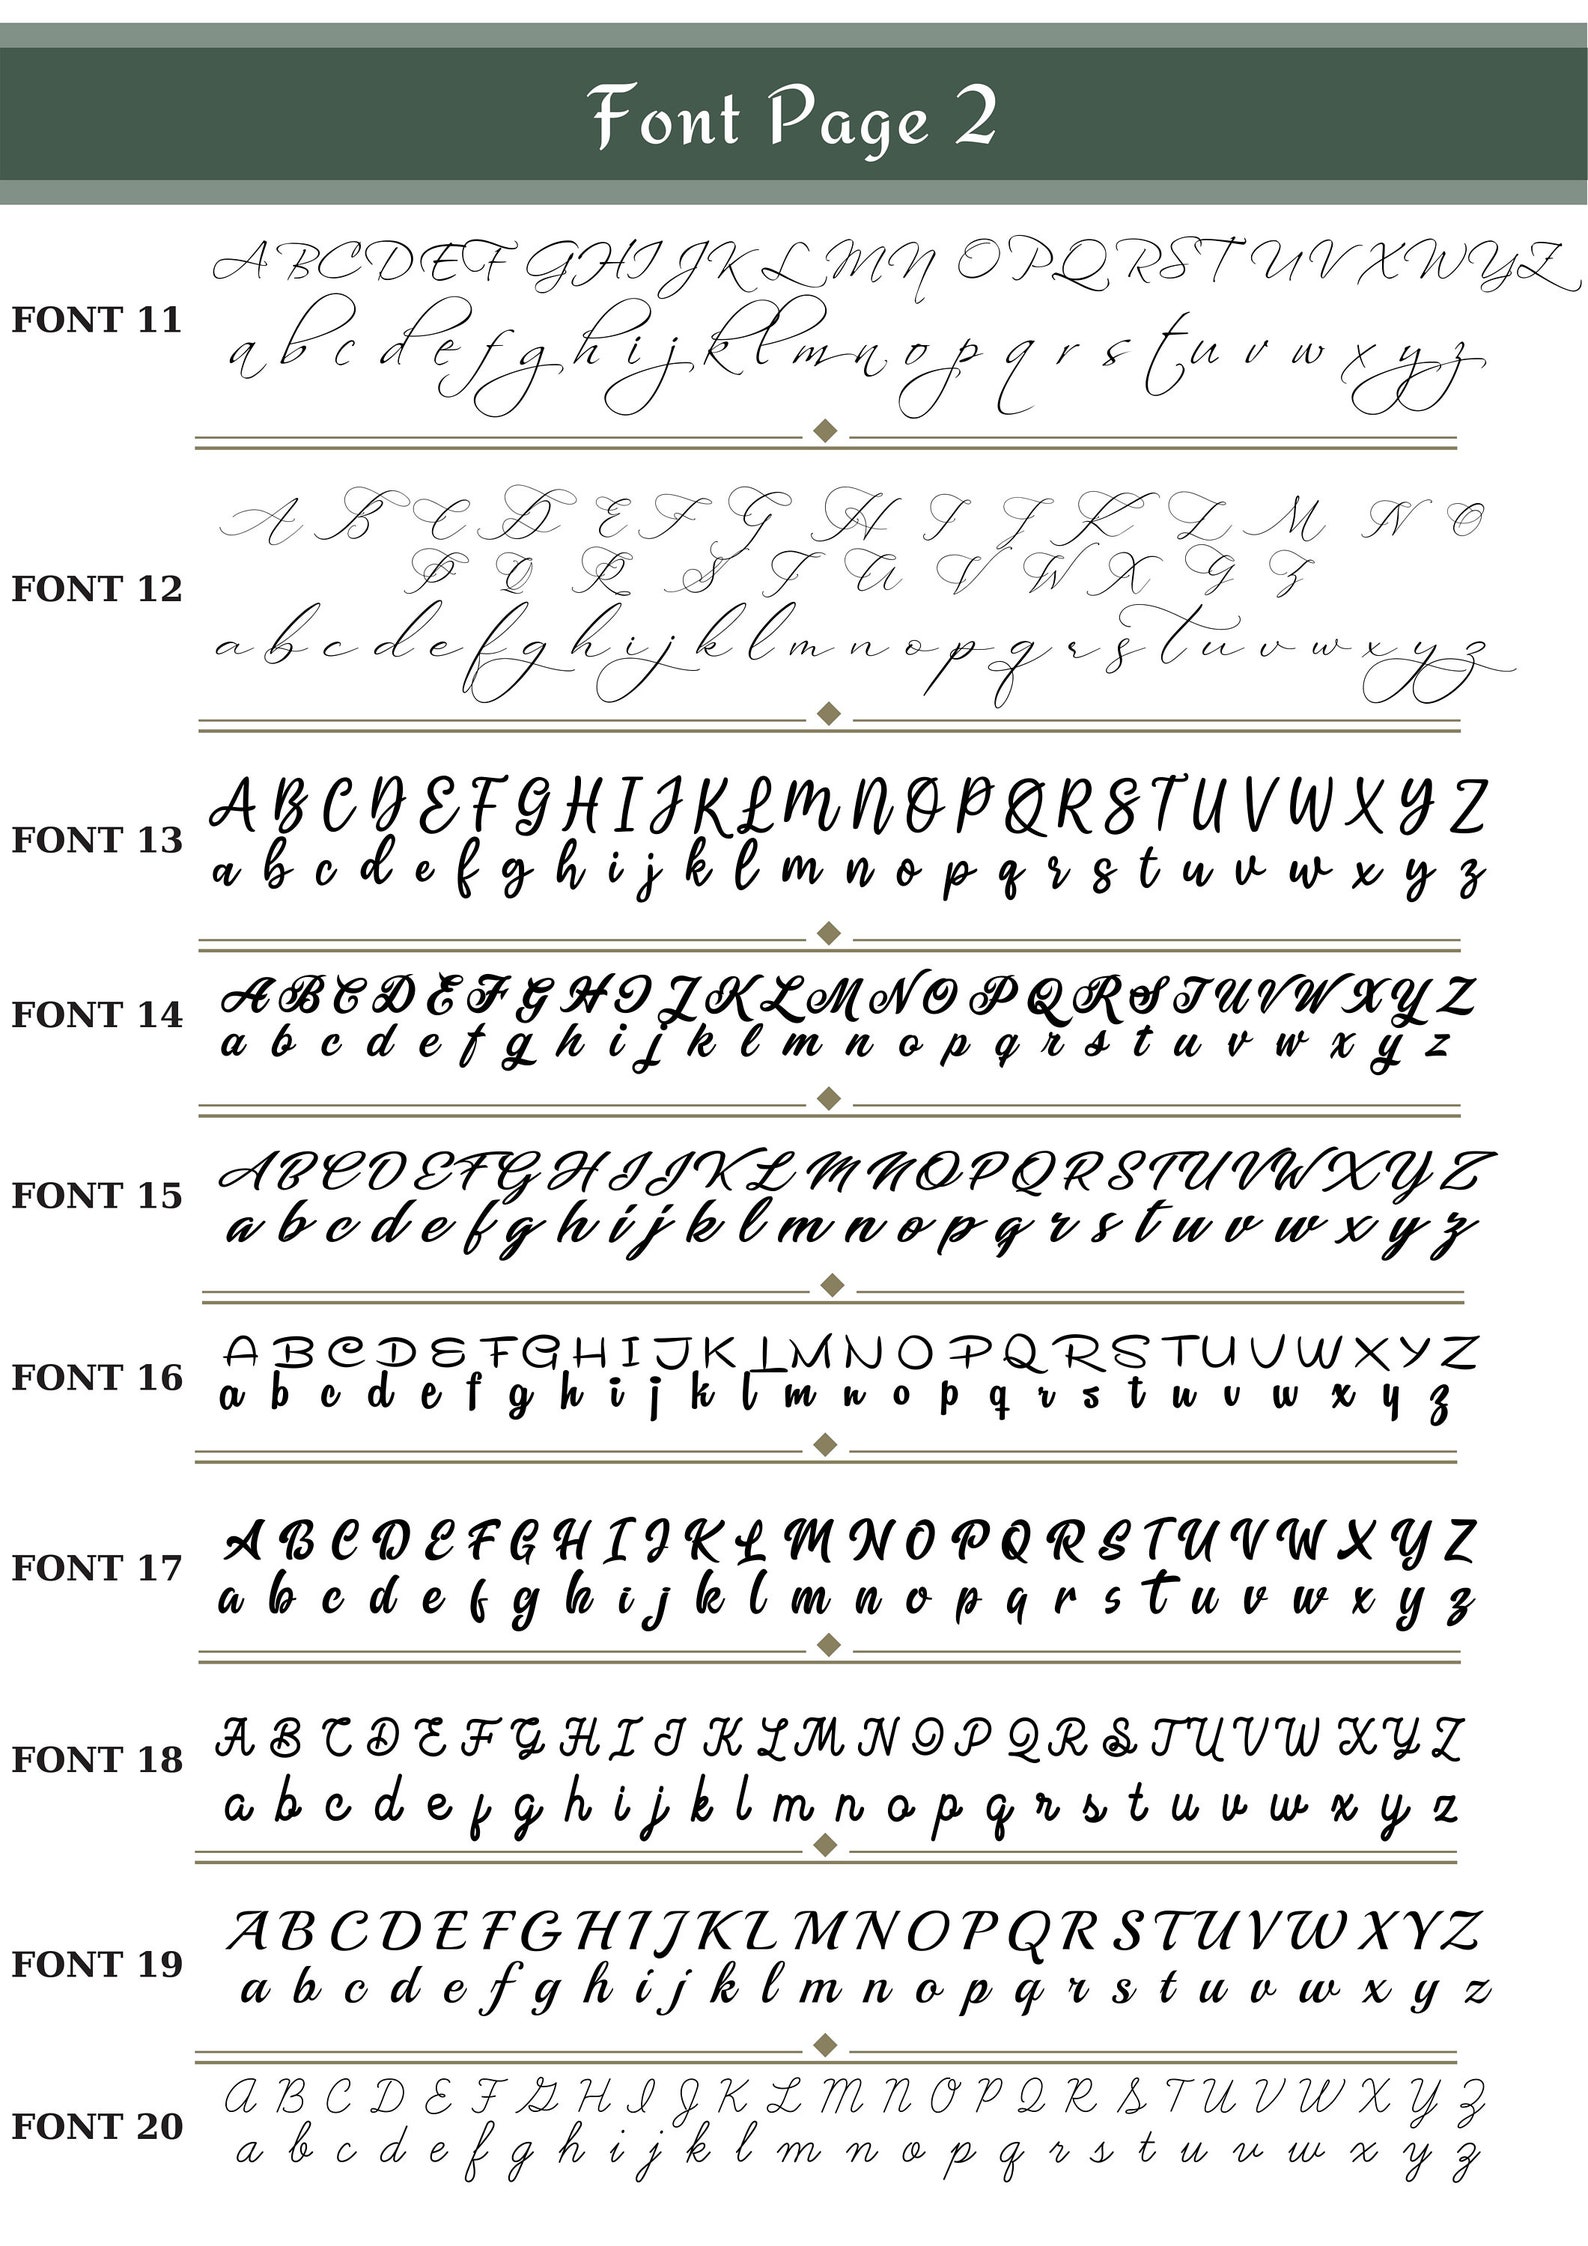 Font Page 2
FONT 11
ABCDEF GHIJKLMN OPQRSTUVXWYZ
a b c d e f g h i j k l m n o p q r s t u v w x y z
FONT 12
A B C D E F G H I J K L M N O
P Q R S T U V W X Y Z
a b c d e f g h i j k l m n o p q r s t u v w x y z
FONT 13
A B C D E F G H I J K L M N O P Q R S T U V W X Y Z
a b c d e f g h i j k l m n o p q r s t u v w x y z
FONT 14
A B C D E F G H I J K L M N O P Q R S T U V W X Y Z
a b c d e f g h i j k l m n o p q r s t u v w x y z
FONT 15
A B C D E F G H I J K L M N O P Q R S T U V W X Y Z
a b c d e f g h i j k l m n o p q r s t u v w x y z
FONT 16
A B C D E F G H I J K L M N O P Q R S T U V W X Y Z
a b c d e f g h i j k l m n o p q r s t u v w x y z
FONT 17
A B C D E F G H I J K L M N O P Q R S T U V W X Y Z
a b c d e f g h i j k l m n o p q r s t u v w x y z
FONT 18
A B C D E F G H I J K L M N O P Q R S T U V W X Y Z
a b c d e f g h i j k l m n o p q r s t u v w x y z
FONT 19
A B C D E F G H I J K L M N O P Q R S T U V W X Y Z
a b c d e f g h i j k l m n o p q r s t u v w x y z
FONT 20
A B C D E F G H I J K L M N O P Q R S T U V W X Y Z
a b c d e f g h i j k l m n o p q r s t u v w x y z